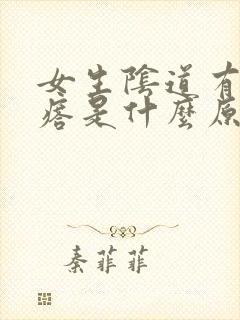 女生陰道有
痞是什麼原
秦菲菲